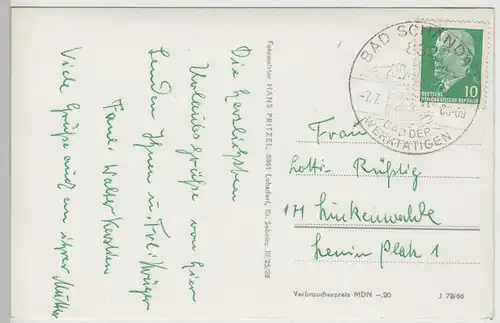 Die herzlichsten
Urlaubsgrüße von hier
senden Ihnen u. Frl. Krüger
Fam. Walter
Viele Grüße auch an ihre Mutter
Fotomeister HANS PRITZEL, 8361 Lohsdorf, Kr. Sebnitz III/25/28
BAD SCHANDAU
-7.7.
BAD DER
WERKTÄTIGEN
10
DEUTSCHE
DEMOKRATISCHE REPUBLIK
Frau
Lotti Rüßtig
171 Luckenwalde
Lenin Platz 1
Verbraucherpreis MDN -,20
J 73/66